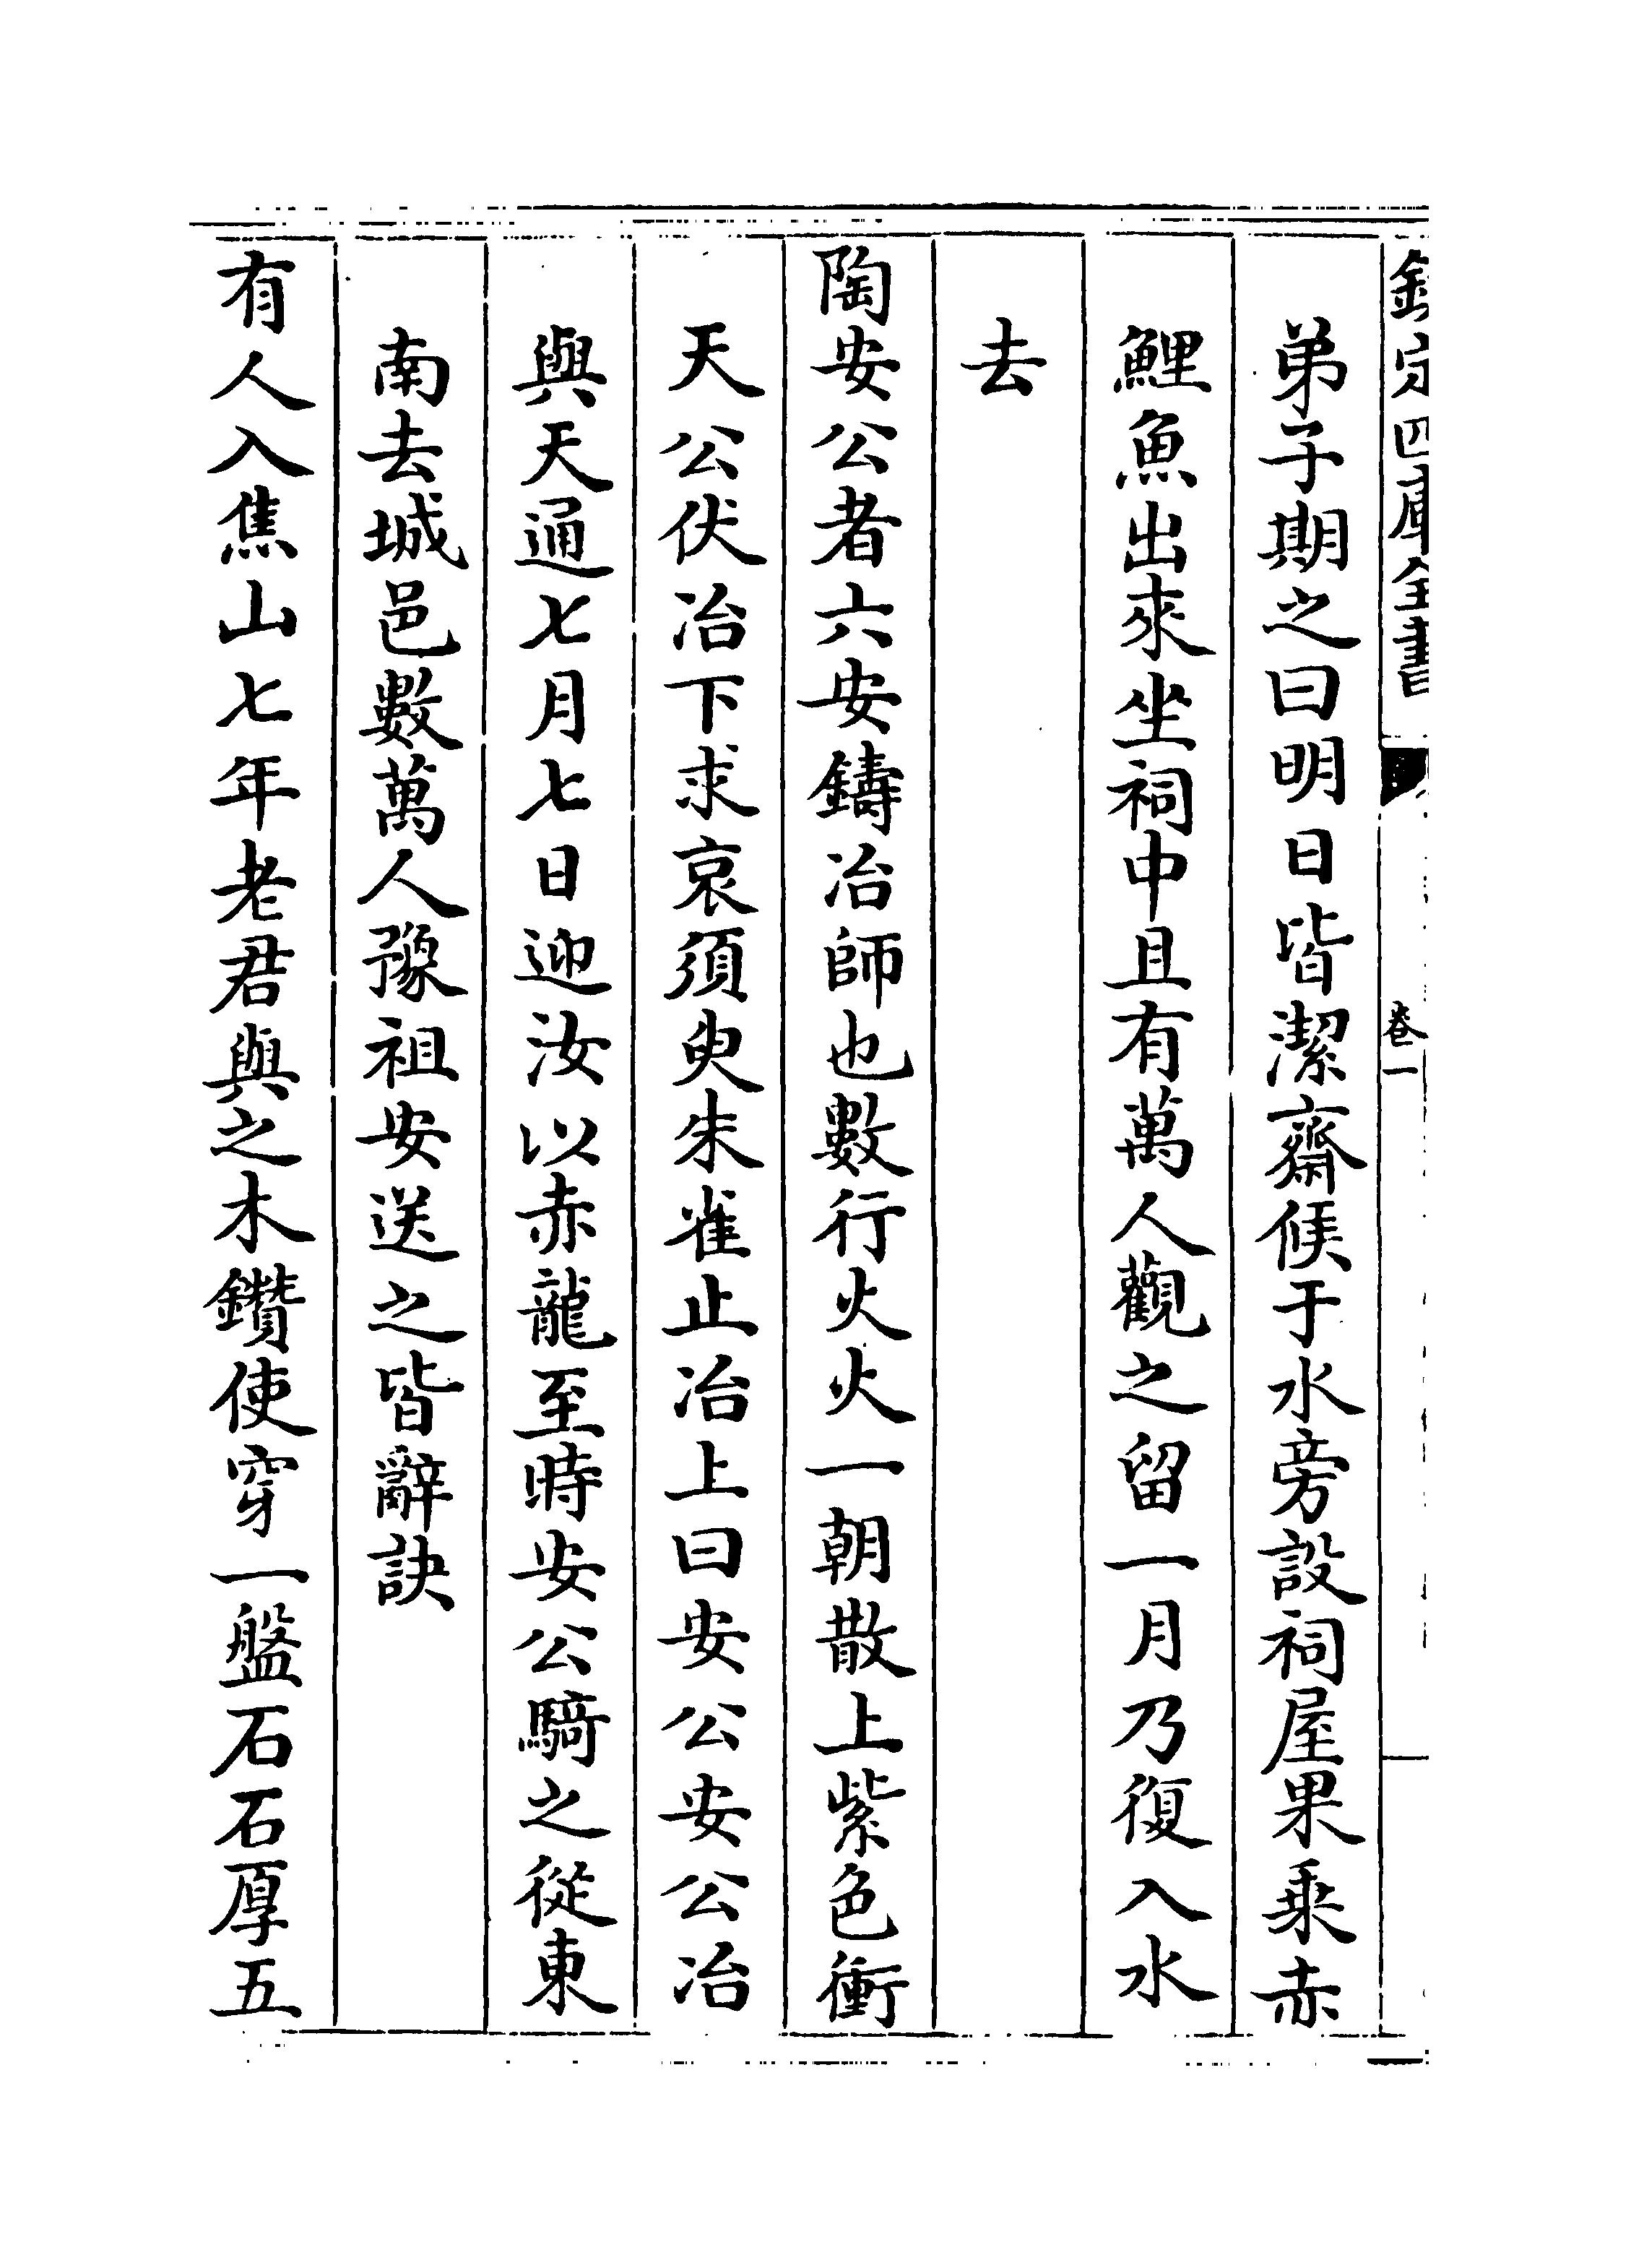 欽定四庫全書
卷一
弟子期之曰明日皆潔齋候于水旁設祠屋果乘赤
鯉魚出來坐祠中且有萬人觀之留一月乃復入水
去
陶安公者六安鑄冶師也數行火火一朝散上紫色衝
天公伏冶下求哀須臾朱雀止冶上曰安公安公冶
與天通七月七日迎汝以赤龍至時安公騎之從東
南去城邑數萬人豫祖安送之皆辭訣
有人入焦山七年老君與之木鑽使穿一盤石石厚五